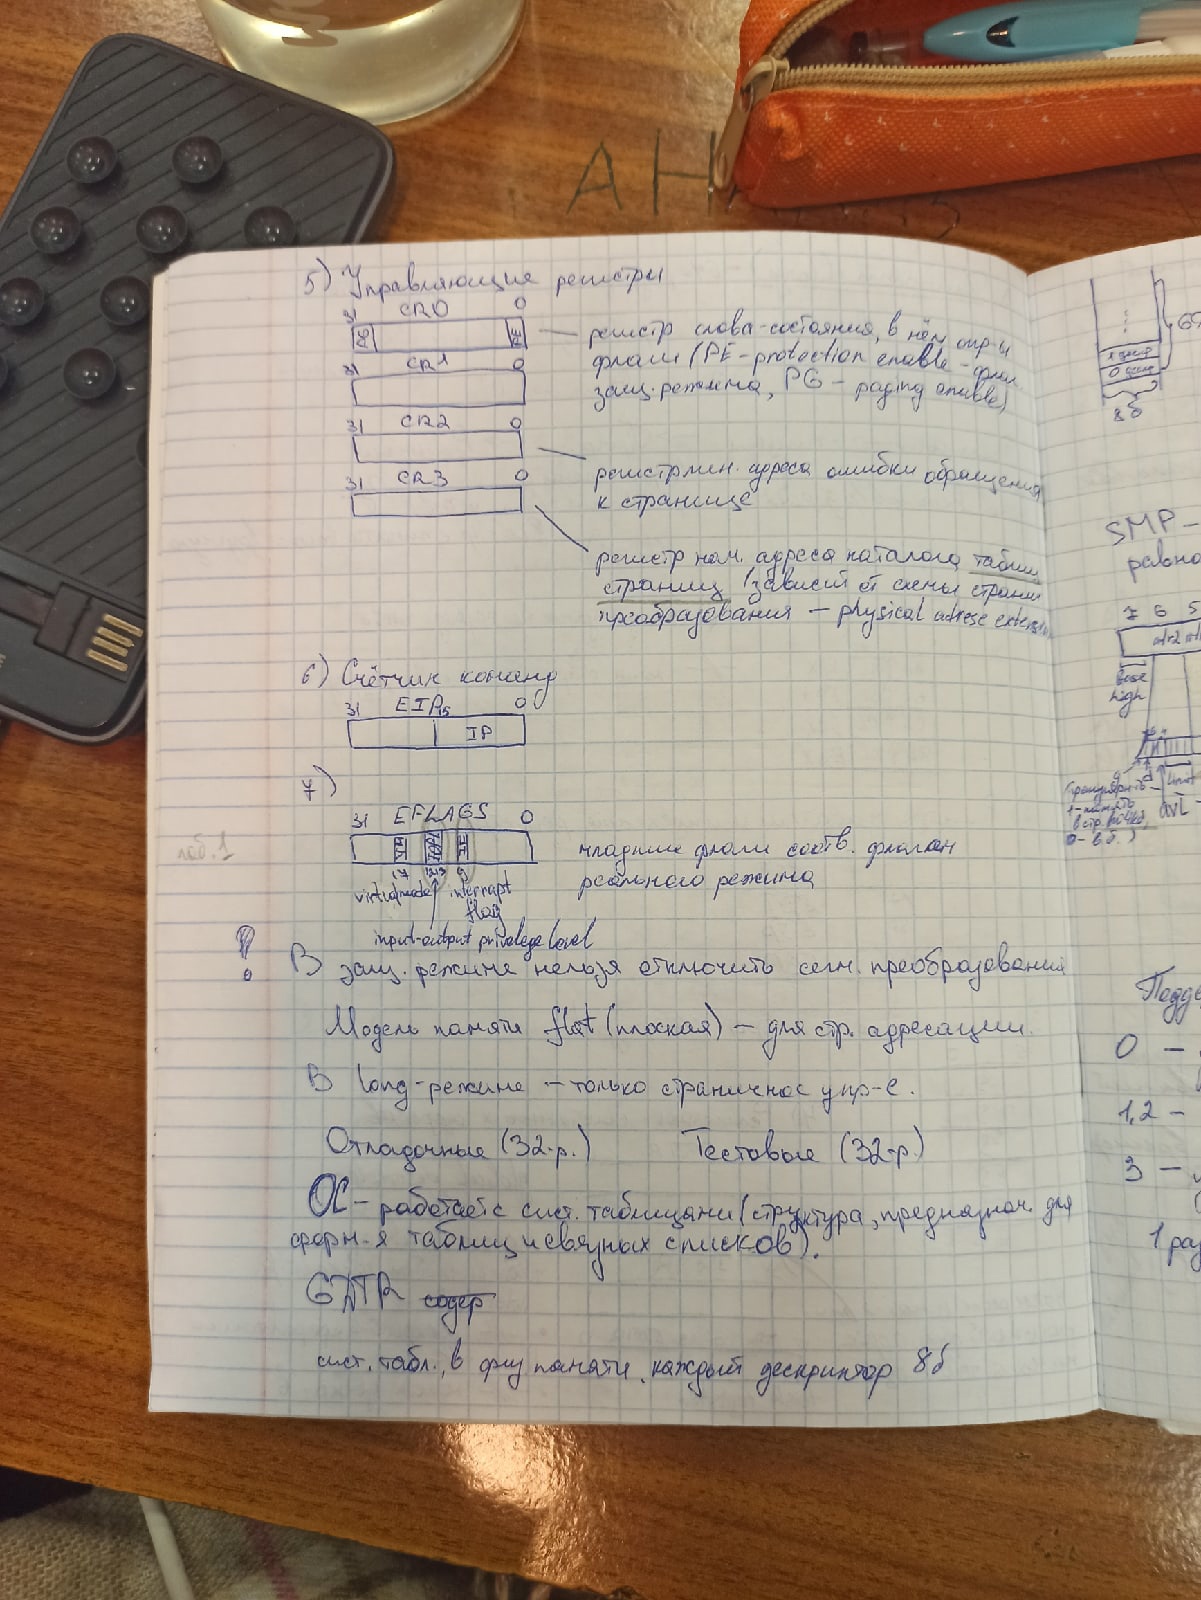 АН
5) Управляющие регистры
31 CR0 0
PG PE
регистр слова-состояния, в нём опр-ы
флаги (PE - protection enable - флаг
защ. режима, PG - paging enable)
31 CR1 0
31 CR2 0
регистр лин. адреса ошибки обращения
к странице
31 CR3 0
регистр нач. адреса каталога таблиц
страниц (зависит от схемы страни
преобразования — physical adrese extension
6) Счётчик команд
31 EIP 15 0
IP
7)
31 EFLAGS 0
лаб. 1
младшие флаги соотв. флагам
реального режима
17
virtual mode
interrupt
flag
input-output privelege level
В защ. режиме нельзя отключить сегм. преобразования
Модель памяти flat (плоская) — для стр. адресации.
В long-режиме — только страничное упр-е.
Отладочные (32-р.) Тестовые (32-р.)
ОС - работает с сист. таблицами (структура, предназнач. для
форм-я таблиц и связных списков).
GDTR содер
сист. табл., в физ памяти, каждый дескриптор 8б
0
8б
SMP -
равно
7 6 5
base
high
limit
avl -
в стр.
0 - в б.)
Подде
0 -
1,2 -
3 -
1 раз